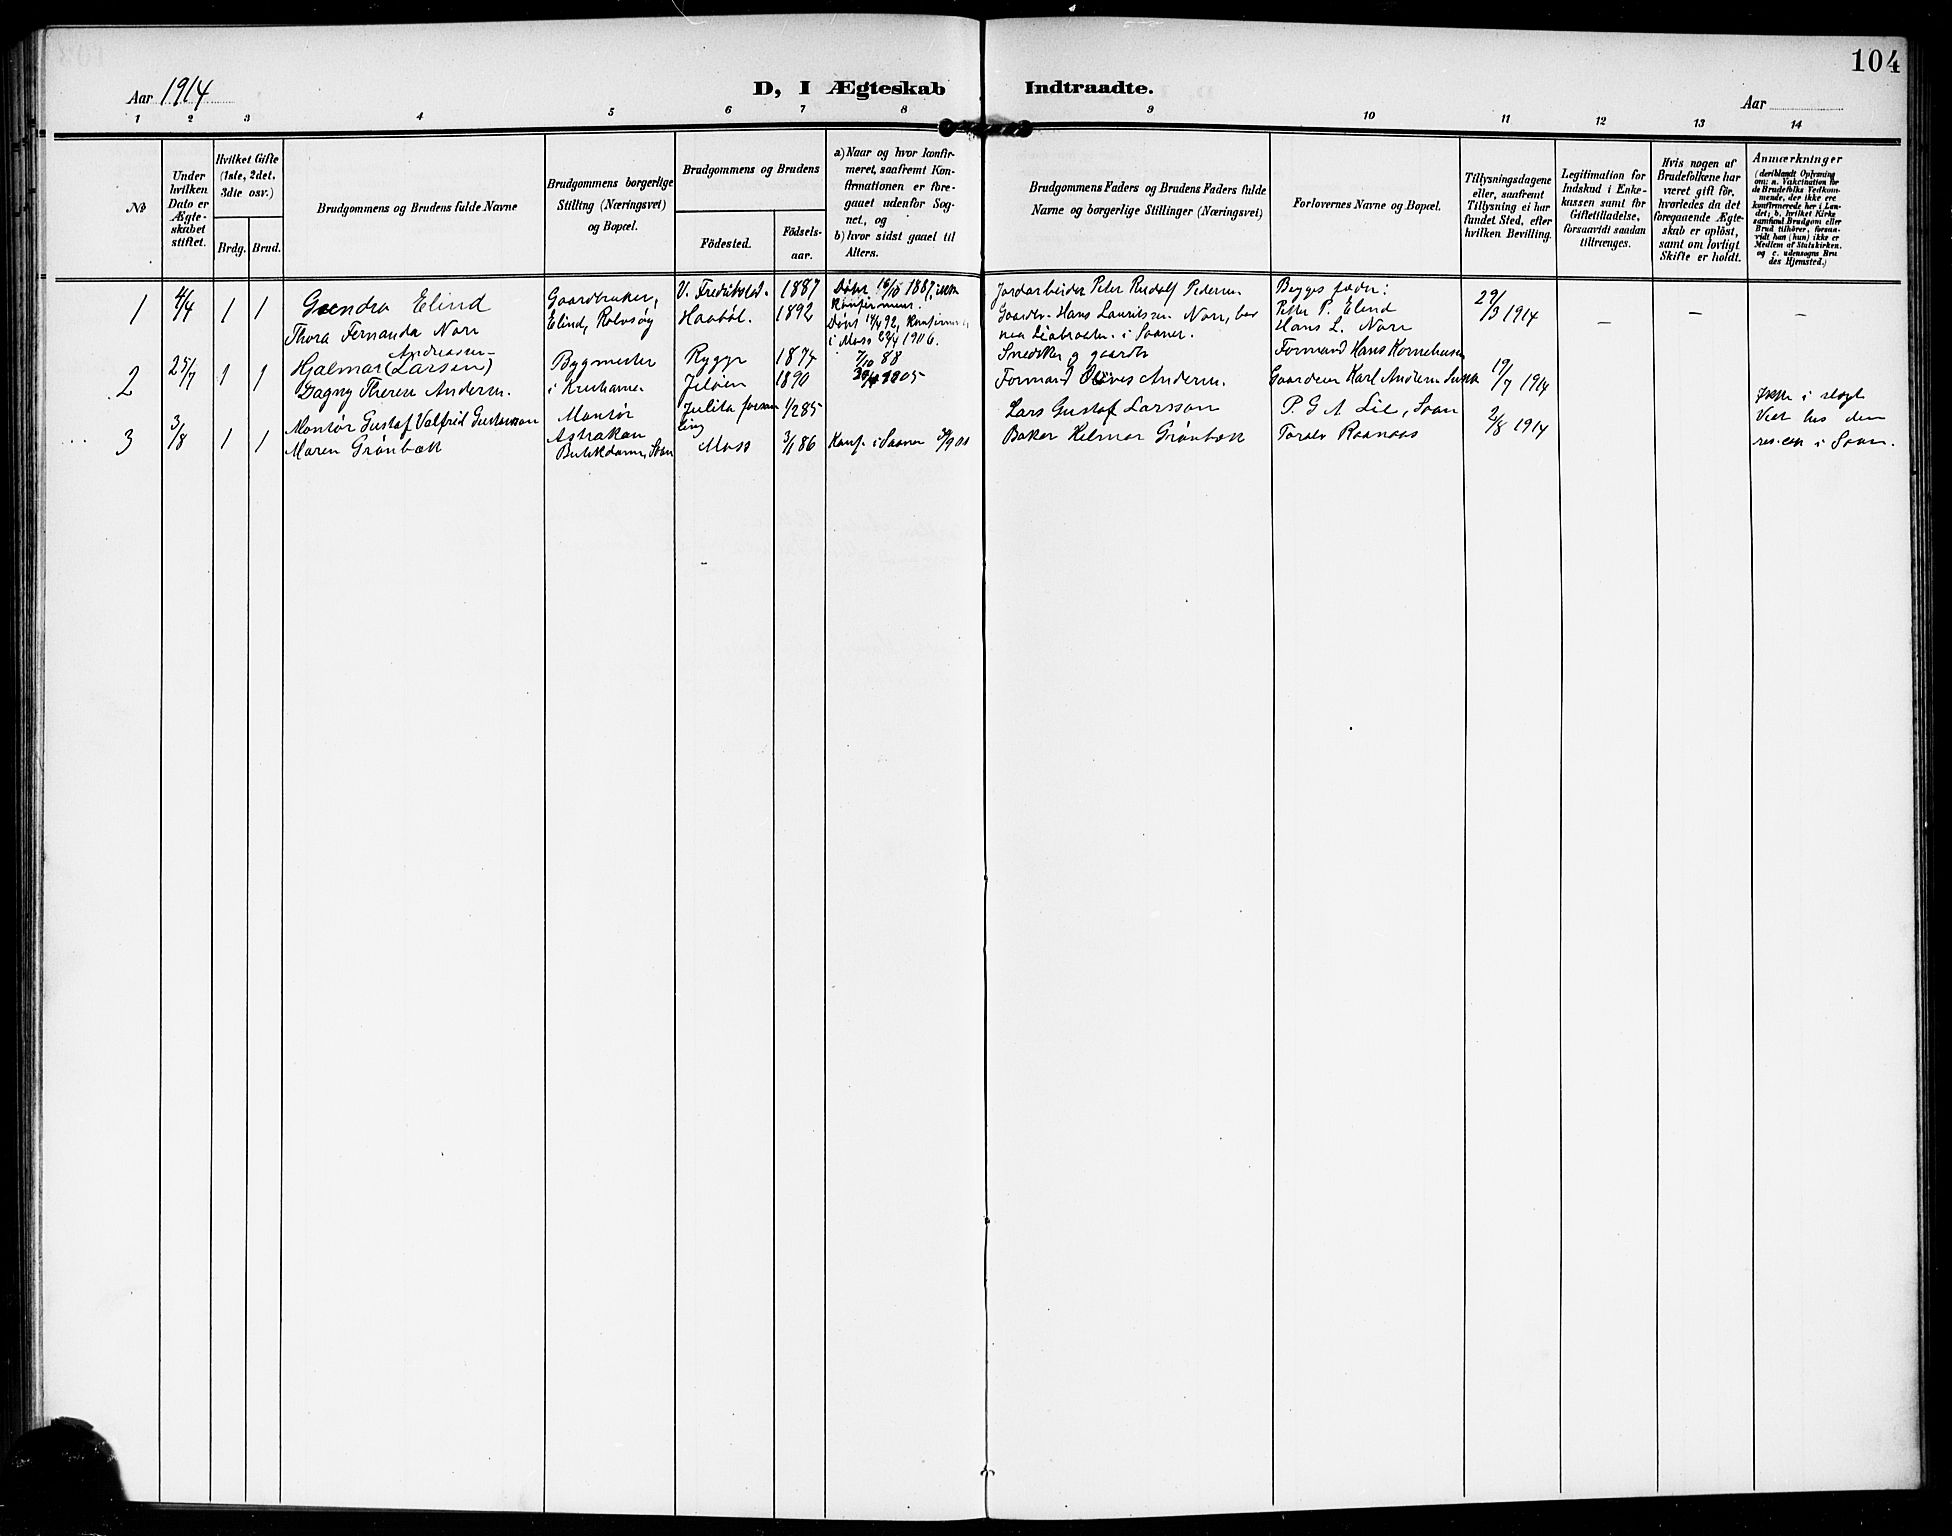 104
Aar 1914
D, I Ægteskab Indtraadte.
Aar
1 2 3 4 5 6 7 8 9 10 11 12 13 14
№
Under hvilken Dato er Ægteskabet stiftet.
Hvilket Gifte (1ste, 2det, 3die osv.)
Brdg. Brud.
Brudgommens og Brudens fulde Navne
Brudgommens borgerlige Stilling (Næringsvei) og Bopæl.
Brudgommens og Brudens
Födested.
Födsels-aar.
a) Naar og hvor konfir-
meret, saafremt Kon-
firmationen er fore-
gaaet udenfor Sog-
net, og
b) hvor sidst gaaet til
Alters.
Brudgommens Faders og Brudens Faders fulde
Navne og borgerlige Stillinger (Næringsvei)
Forlovernes Navne og Bopæl.
Tillysningsdagene
eller, saafremt
Tillysning ei har
fundet Sted, efter
hvilken Bevilling.
Legitimation for
Indskud i Enke-
kassen samt for
Giftetilladelse,
forsaavidt saadan
tiltrænges.
Hvis nogen af
Brudefolkene har
været gift för,
hvorledes da det
foregaaende Ægte-
skab er oplöst,
samt om lovligt
Skifte er holdt.
Anmærkninger
(deriblandt Oplysning
om: a. Vakcination for
de Brudefolks Vedkom-
mende, der ikke ere
konfirmerede her i Lan-
det; b. hvilket Kirke-
samfund Brudgom eller
Brud tilhörer, forsaa-
vidt han (hun) ikke er
Medlem af Statskirken,
og c. udensogns Bru-
des Hjemsted.)
1 4/4 1 1 Elind
Thora Fernanda Norr
Gaardbruker,
Elind, Rolvsöy
V. Fredrikstad. 1887
Haabøl. 1892
Döbt 16/10 1887, ikke
konfirmeret.
i Moss 29/4 1906.
Jordarbeider Peter Rudolf Pedersen
Gaardbr. Hans Lauritzen Norr,
i Saaner.
Begges fædre:
Petter P. Elind
Hans L. Norr
29/3 1914
– – –
2 25/7 1 1 Hjalmar (Larsen)
Andreassen
Dagny Andersen.
Bygmester
Rygge 1874
Jeløen 1890
7/10 88
1905
Snedker og gaardbr
Formand Andersen.
Formand Hans Kornelius
Gaardeier Karl
19/7 1914
3 3/8 1 1 Montør Gustaf Valfrid Gustafsson
Maren Grønbæk
Montør
Astrakan
Butikdame, Soon
Julita 1/2 85
Moss 3/1 86
Konf. i Saaner
Lars Gustaf Larsson
Baker Helmer Grønbæk
P. G. A. Lie, Soon
Toralv Raanaas
2/8 1914
Ikke i slægt
Viet hos den
res. cap. i Soon.